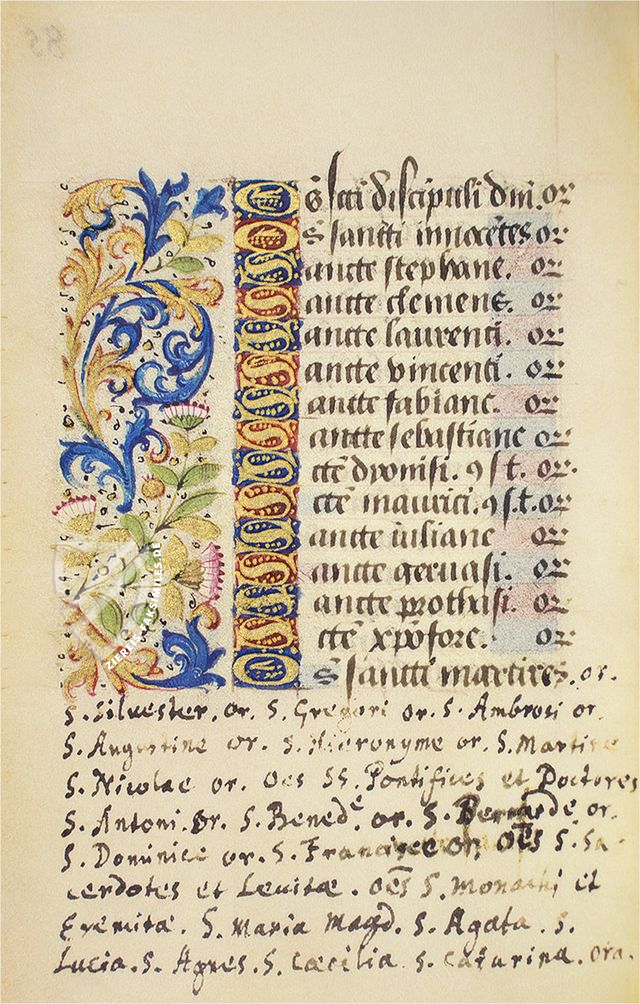 Os̄ sc̄ti discipuli dm̄. or
Os̄ sancti inocētes or
Sancte stephane. or
Sancte clemens. or
Sancte laurenti. or
Sancte vincenti. or
Sancte fabiane. or
Sancte sebastiane or
Sctē dionisi. 9 s t. or.
Sctē maurici. 9 s. t. or
Sancte iuliane or
Sancte geruasi. or
Sancte prothasi. or
Sctē xp̄ofore. or
Os̄ sancti martires. or.
S. Siluester. or. S. Gregori or. S. Ambrosi or.
S. Augustine or. S. Hieronyme or. S. Martine
S. Nicolae or. Oēs SS. Pontifices et Doctores
S. Antoni. or. S. Benedᵉ. or. S. Bernarde or.
S. Dominice or. S. Francisce or. Oēs S. Sa-
cerdotes et Levitæ. Oēs S. Monachi et
Eremitæ. S. Maria Magd. S. Agata. S.
Lucia. S. Agnes. S. Cæcilia. S. Caturina. ora.
ZIEREIS FAKSIMILES.DE